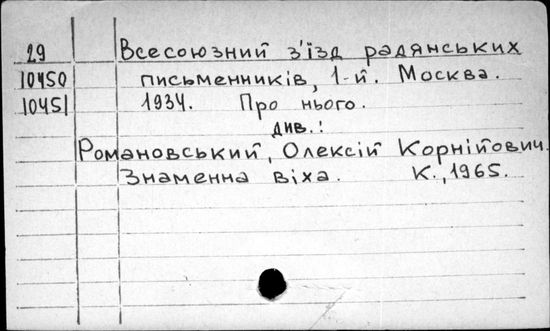 29 Всесоюзний з'їзд радянських
10450 письменників, 1-й. Москва.
10451 1934. Про нього.
див.:
Романовський, Олексій Корнійович.
Знаменна віха. К., 1965.